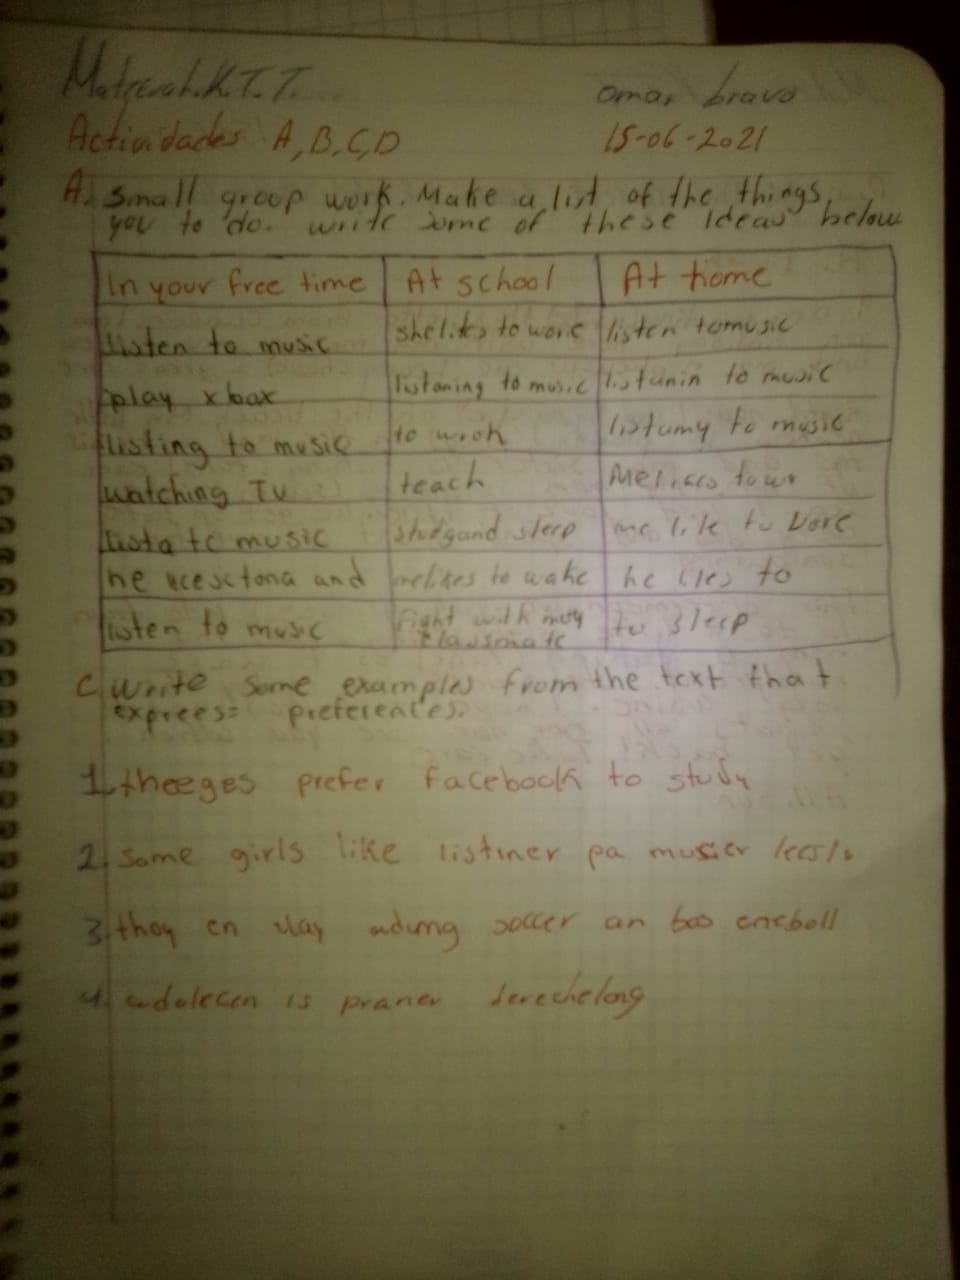 omar bravo
Actividades A,B,C,D
15-06-2021
A. Small groop work. Make a list of the things
you to do. write some of these Ideas below
In your free time At school At home
listen to music she likes to work listen to music
play x box listaning to music listunin to music
listing to music to wroh listumy to music
watching TV teach
lista to music stud and sleep me like to
he and melikes to wake he to
listen to music fight with moy to sleep
classmate
C Write some examples from the text that
exprees= preferences.
1. theeges prefer facebook to study
2. Some girls like listiner pa musicr
3. they en soccer an bas eneboll
4. adolecen is praner derechelong